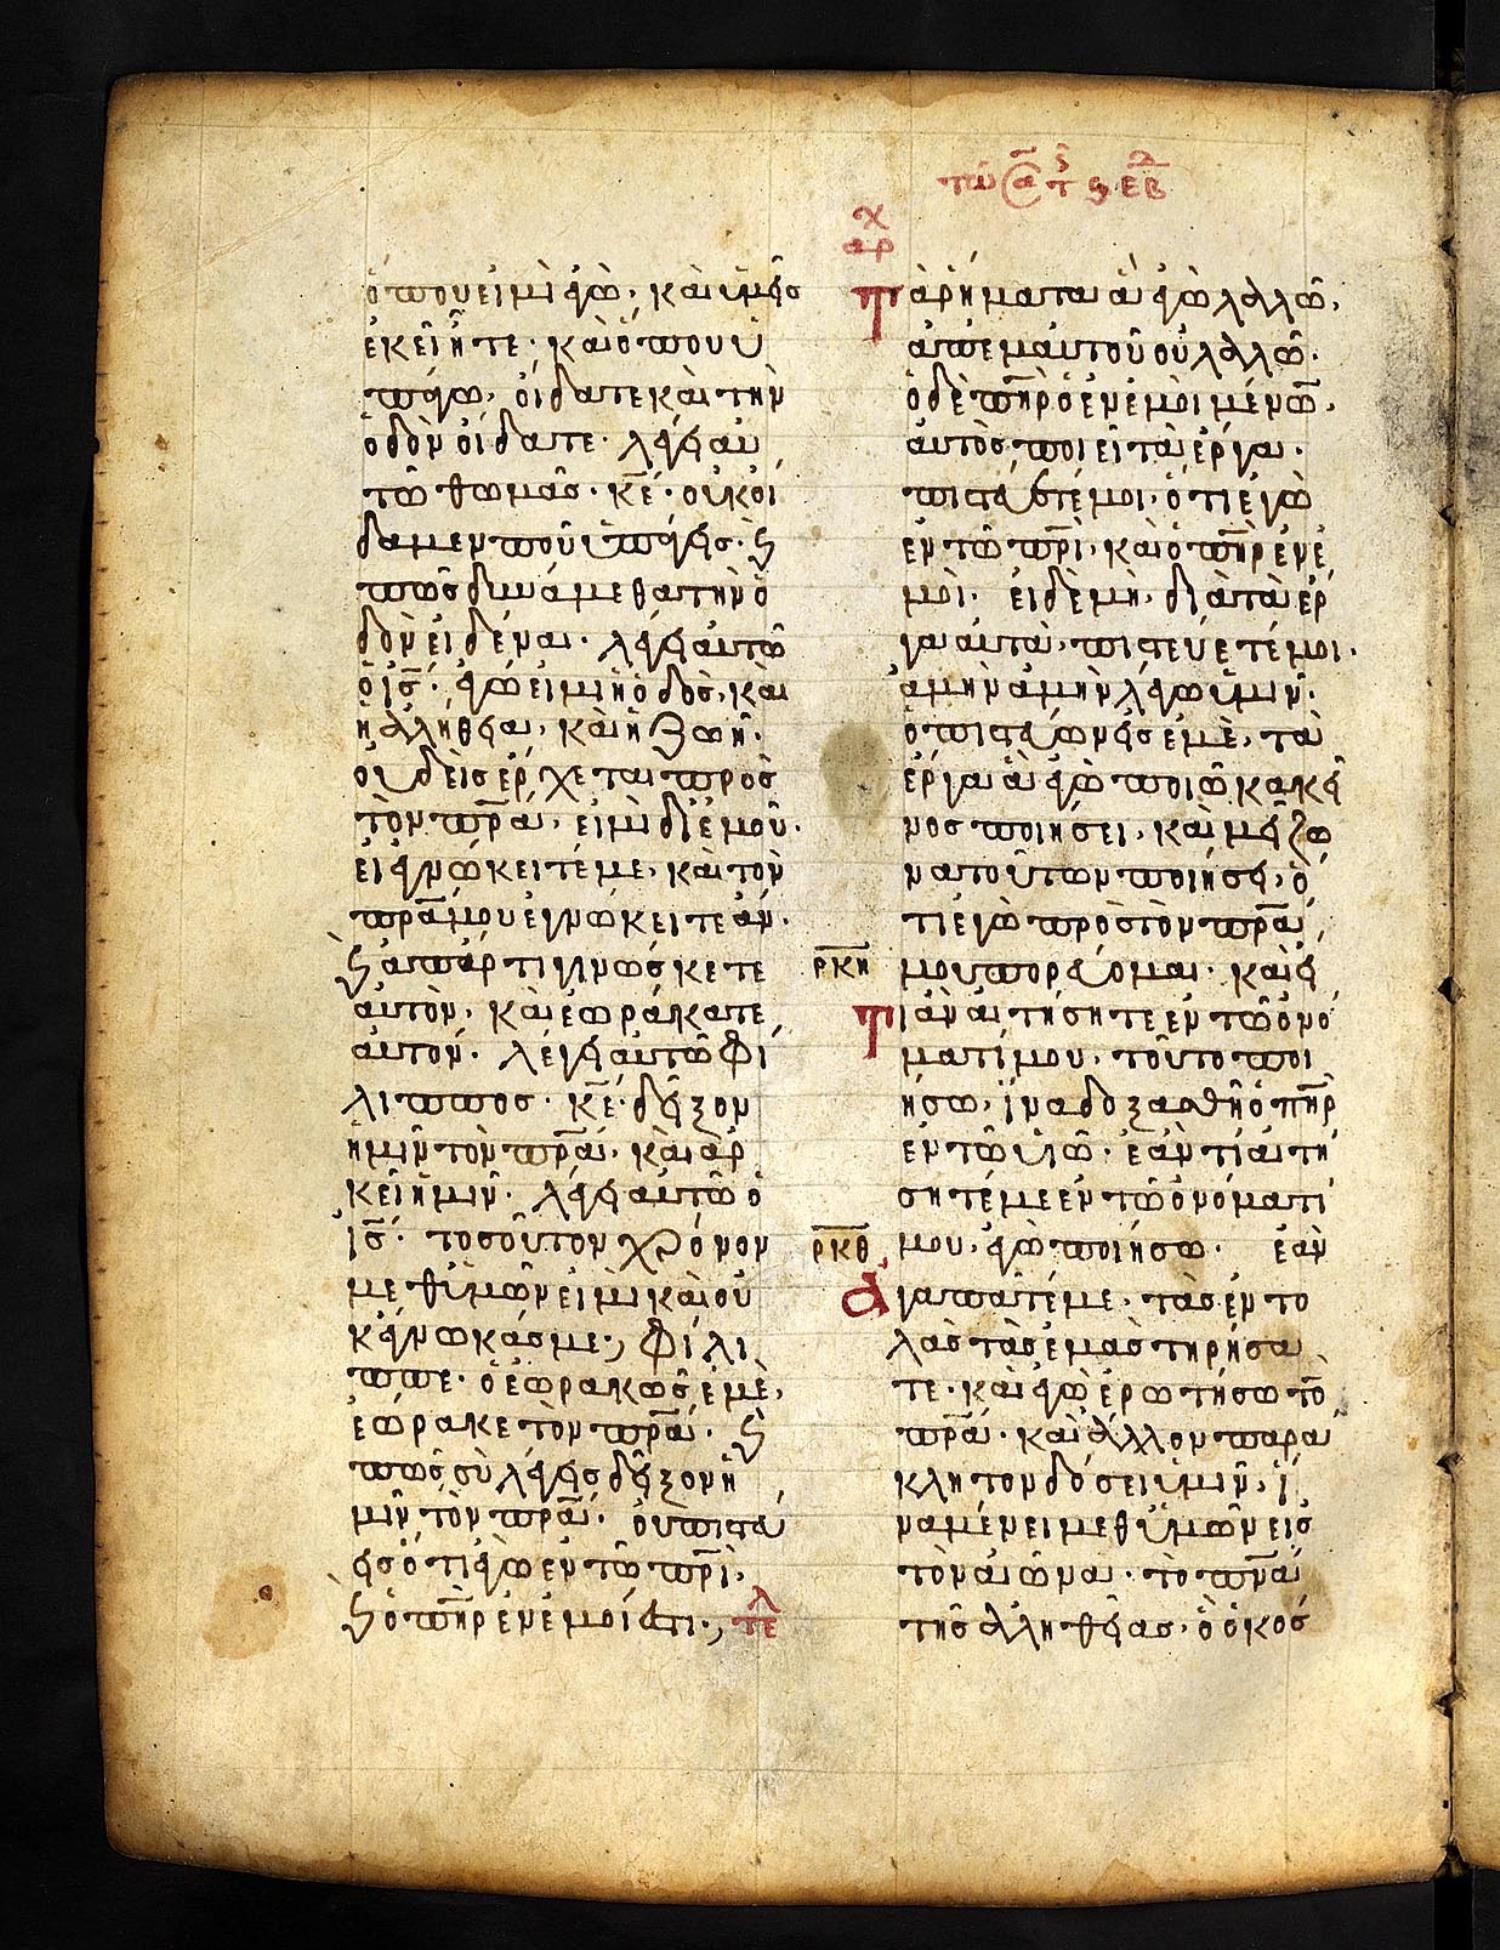 τω Α τ ς εβ
αρχ
ὅπου εἰμὶ ἐγὼ, καὶ ὑμεῖσ
ἐκεῖ ἦτε· καὶ ὅπου ὑ
πάγω, οἴδατε καὶ τὴν
ὁδὸν οἴδατε· λέγει αυ
τῶ θωμᾶσ· κ̅ε̅· οὐκ οἴ
δαμεν ποῦ ὑπάγεισ· ϗ
πῶσ δυνάμεθα τὴν ὁ
δὸν εἰδέναι· λέγει αὐτῶ
ὁ ι̅σ̅· ἐγώ εἰμι ἡ ὁδὸσ, καὶ
ἡ ἀλήθεια, καὶ ἡ ζωή·
οὐδεὶσ ἔρχεται πρὸσ
τὸν π̅ρ̅α̅, εἰ μὴ δι ἐμοῦ·
εἰ ἐγνώκειτέ με, καὶ τὸν
π̅ρ̅α̅ μου ἐγνώκειτε ἄν·
ϗ ἀπάρτι γινώσκετε
αὐτὸν, καὶ ἑωράκατε
αὐτόν· λέγει αὐτῶ φί
λιππος· κ̅ε̅· δεῖξον
ἡμῖν τὸν π̅ρ̅α̅, καὶ ἀρ
κεῖ ἡμῖν· λέγει αὐτῶ ὁ
ι̅σ̅· τοσοῦτον χρόνον
μεθ ὑμῶν εἰμὶ καὶ οὐ
κ ἔγνωκάσ με; φίλι
ππε· ὁ ἑωρακὼσ ἐμὲ,
ἑώρακε τὸν π̅ρ̅α̅· ϗ
πῶσ σὺ λέγεισ δεῖξον ἡ
μῖν τὸν π̅ρ̅α̅· οὐ πιστεύ
εισ ὅτι ἐγὼ ἐν τῶ π̅ρ̅ι̅,
ϗ ὁ π̅η̅ρ̅ ἐν ἐμοί ἐστι; τελ
Τὰ ῥήματα ἃ ἐγὼ λαλῶ,
ἀπ ἐμαυτοῦ οὐ λαλῶ·
ὁ δὲ π̅η̅ρ̅ ὁ ἐν ἐμοὶ μένων,
αὐτὸσ ποιεῖ τὰ ἔργα·
πιστεύετέ μοι· ὅτι ἐγὼ
ἐν τῶ π̅ρ̅ι̅, καὶ ὁ π̅η̅ρ̅ ἐν ἐ
μοὶ· εἰ δὲ μὴ, διὰ τὰ ἔρ
γα αὐτὰ, πιστεύετέ μοι·
ἀμὴν ἀμὴν λέγω ὑμῖν·
ὁ πιστεύων εἰσ ἐμὲ, τὰ
ἔργα ἃ ἐγὼ ποιῶ κακεῖ
νοσ ποιήσει, καὶ μείζο
να τούτων ποιήσει, ὅ
τι ἐγὼ πρὸσ τὸν π̅ρ̅α̅
ρκη μου πορεύομαι· καὶ ὅ
Τι ἂν αἰτήσητε ἐν τῶ ὀνό
ματί μου, τοῦτο ποι
ήσω, ἵνα δοξασθῆ ὁ π̅η̅ρ̅
ἐν τῶ υἱῶ· ἐάν τι αἰτή
σητέ με ἐν τῶ ὀνόματί
ρκθ μου, ἐγὼ ποιήσω· ἐὰν
Αγαπᾶτέ με, τὰσ ἐντο
λὰσ τὰσ ἐμὰσ τηρήσα
τε· καὶ ἐγὼ ἐρωτήσω το̅
π̅ρ̅α̅· καὶ ἄλλον παρά
κλητον δώσει ὑμῖν, ἵ
να μένει μεθ ὑμῶν εἰσ
τὸν αἰῶνα· τὸ π̅ν̅α̅
τῆσ ἀληθείασ, ὃ ὁ κόσ